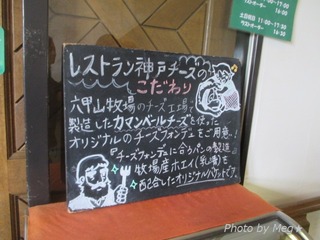 レストラン神戸チーズの
こだわり
六甲山牧場のチーズ工場で
製造したカマンベールチーズを使った
オリジナルのチーズフォンデュをご用意!
チーズフォンデュに合うパンの製造
牧場産ホエイ(乳清)を
配合したオリジナルバゲットです
17:00
16:30
土日祝日 11:00~17:30
ラストオーダー 16:30
Photo by Meg★